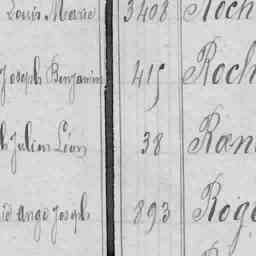 Louis Marie 3408 Roch
Joseph Benjamin 415 Roch
h Julien Léon 38 Ræn
Ange Joseph 893 Roge